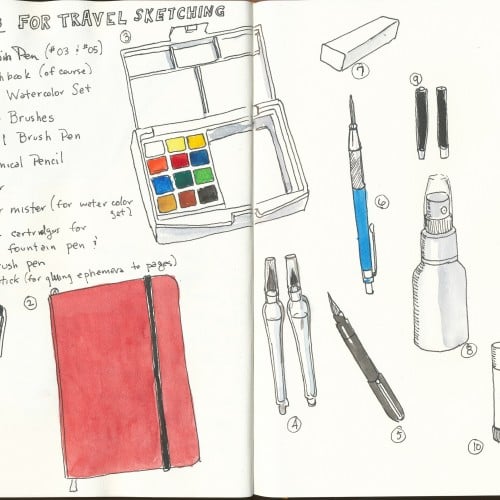 FOR TRAVEL SKETCHING
Pen (#03 & #05)
book (of course)
Watercolor Set
Brushes
1 Brush Pen
Pencil
mister (for water color set)
for
fountain pen &
brush pen
stick (for gluing ephemera to pages)
3
7
9
6
2
8
4
5
10